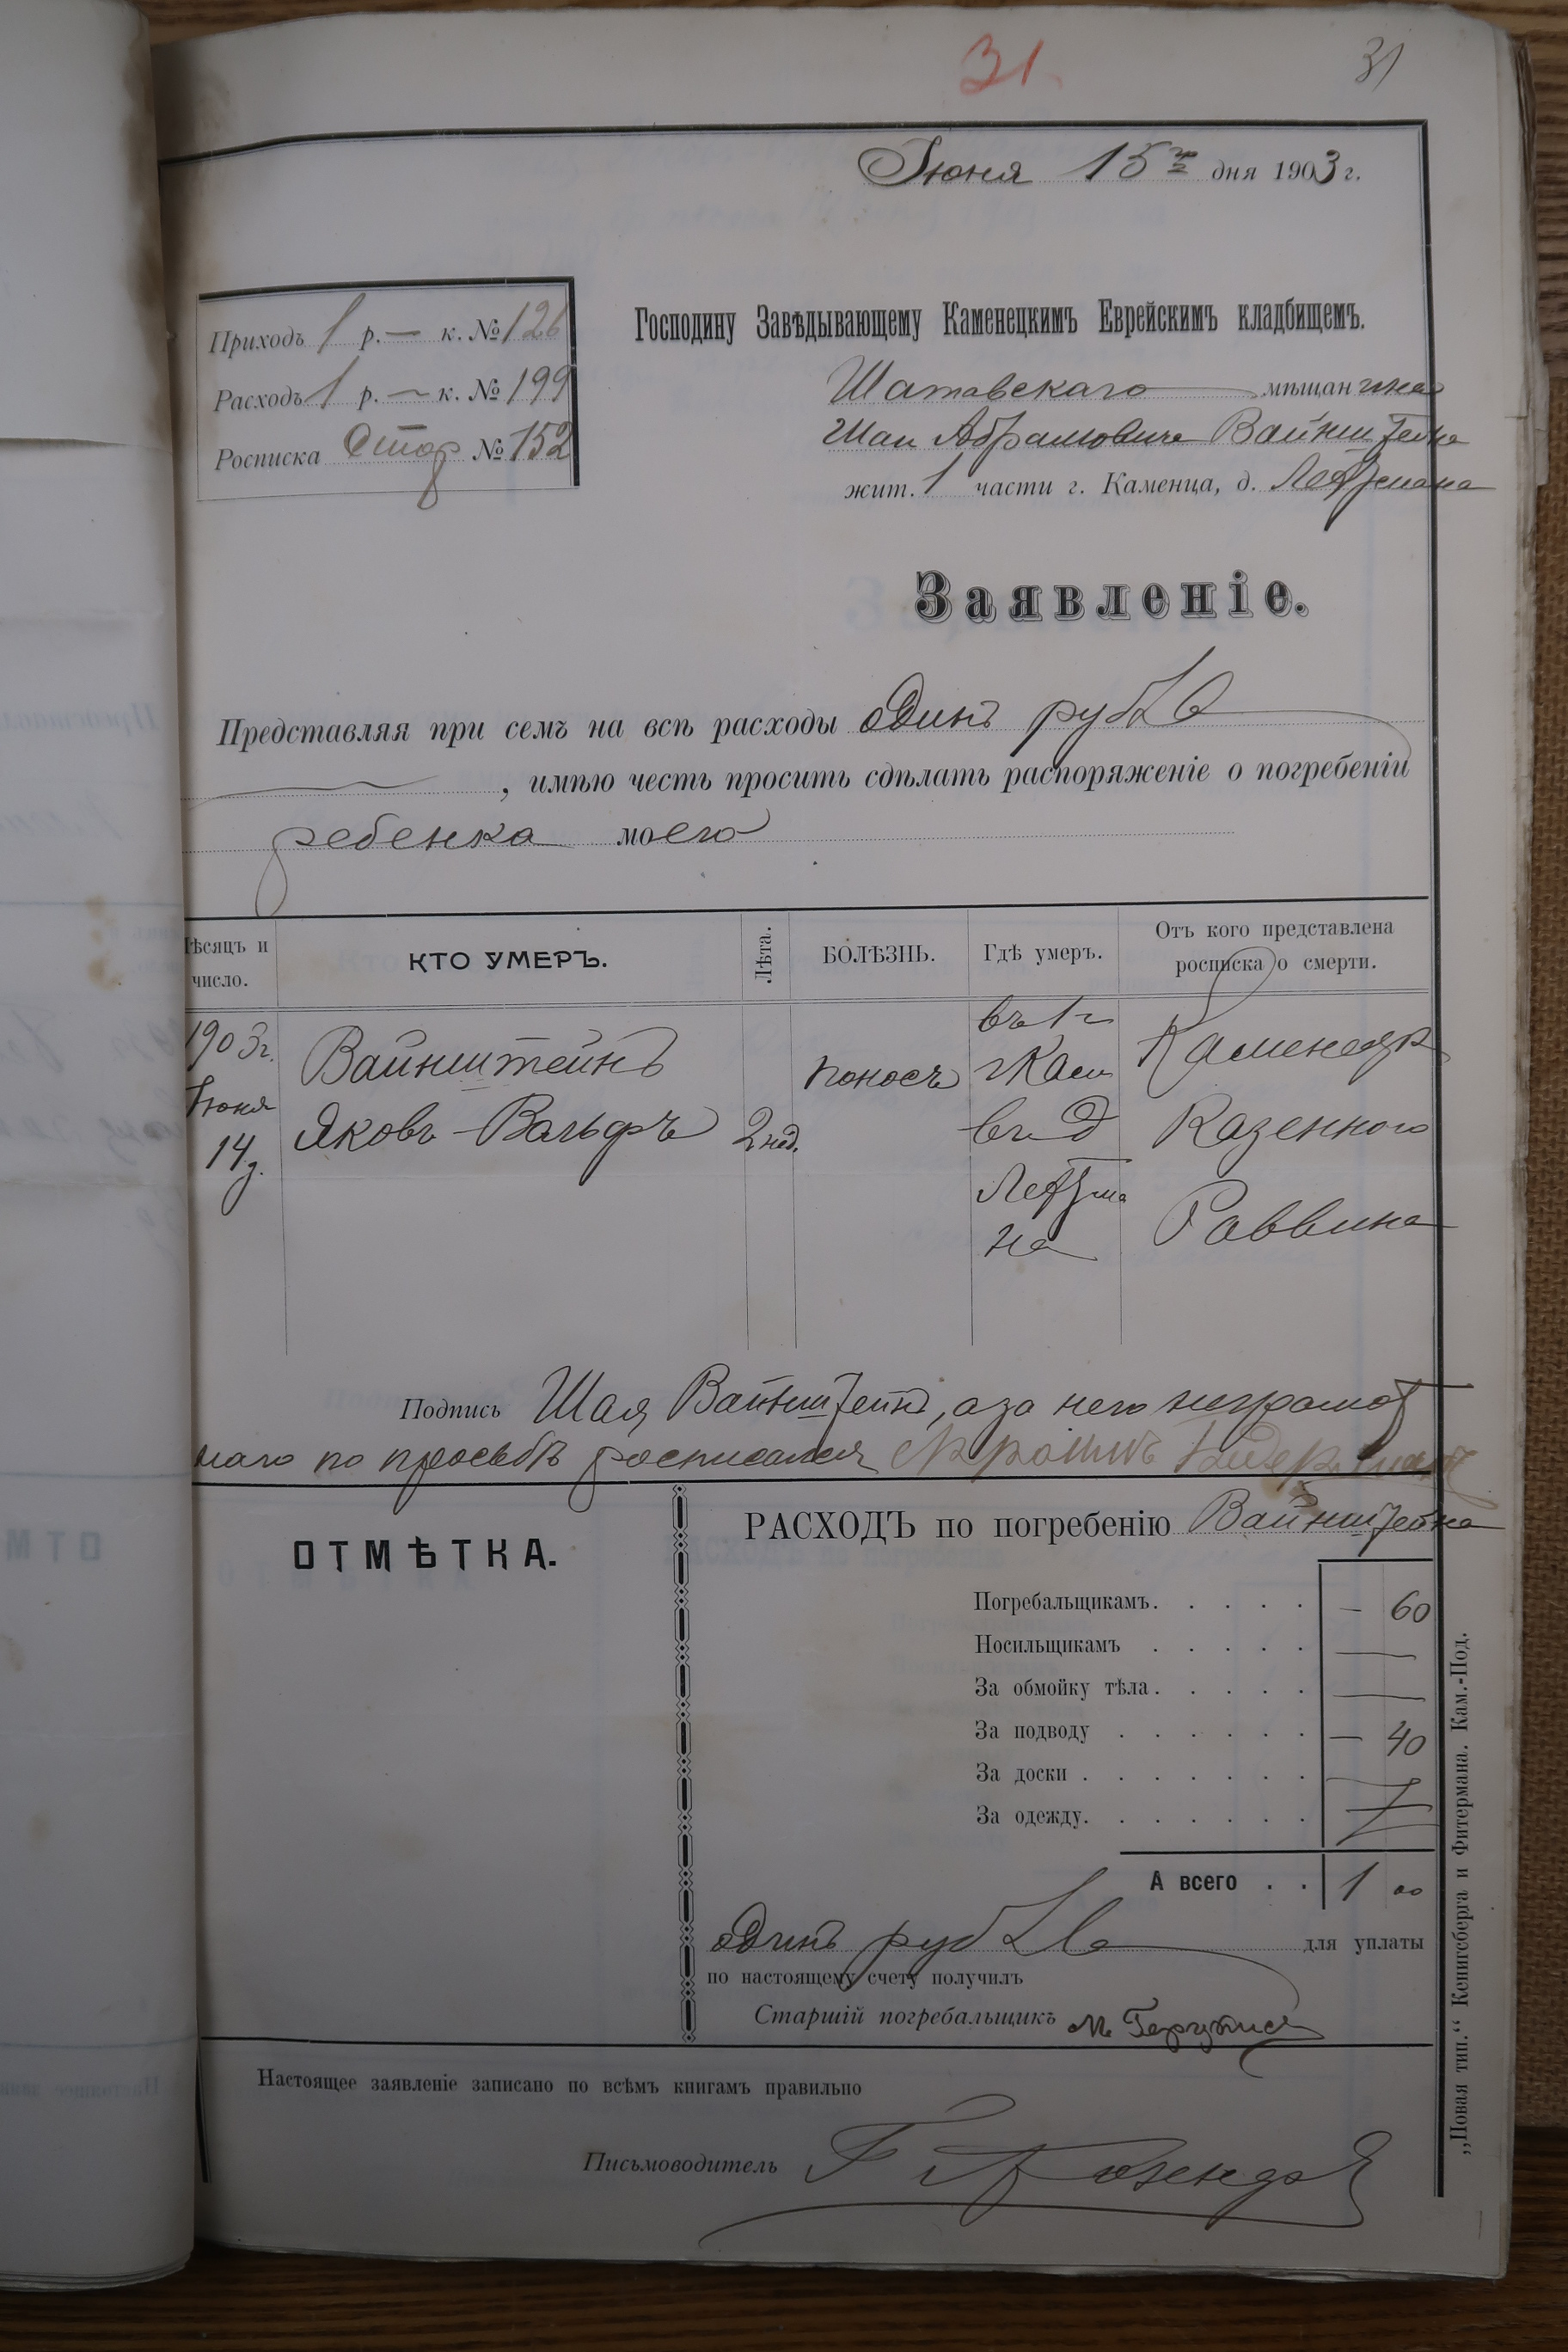 31.
31
Іюня 15го дня 1903 г.
Приходъ 1 р. — к. № 126
Расходъ 1 р. — к. № 199
Росписка Стор № 152
Господину Завѣдывающему Каменецкимъ Еврейскимъ кладбищемъ.
Шатавскаго мѣщанина
Шаи Абрамовича Вайнштейна
жит. 1 части г. Каменца, д.
Заявленіе.
Представляя при семъ на всѣ расходы одинъ рубль
, имѣю честь просить сдѣлать распоряженіе о погребеніи
ребенка моего
Мѣсяцъ и число.
КТО УМЕРЪ.
Лѣта.
БОЛѢЗНЬ.
Гдѣ умеръ.
Отъ кого представлена росписка о смерти.
1903 г. Іюня 14 д.
Вайнштейнъ
Яковъ-Вольфъ
2 нед.
поносъ
въ 1 ч
г Кам
въ д
Каменецк
Казенного
Раввина
Подпись Шая Вайнштейнъ, а за него неграмот
наго по просьбѣ росписался
ОТМѢТКА.
РАСХОДЪ по погребенію Вайнштейна
Погребальщикамъ. . . . . — 60
Носильщикамъ . . . . . —
За обмойку тѣла . . . . . —
За подводу . . . . . . — 40
За доски . . . . . . . —
За одежду . . . . . .
А всего . . 1 00
одинъ рубль для уплаты
по настоящему счету получилъ
Старшій погребальщикъ М.
Настоящее заявленіе записано по всѣмъ книгамъ правильно
Письмоводитель
„Новая тип.“ Кенигсберга и Фитермана. Кам.-Под.